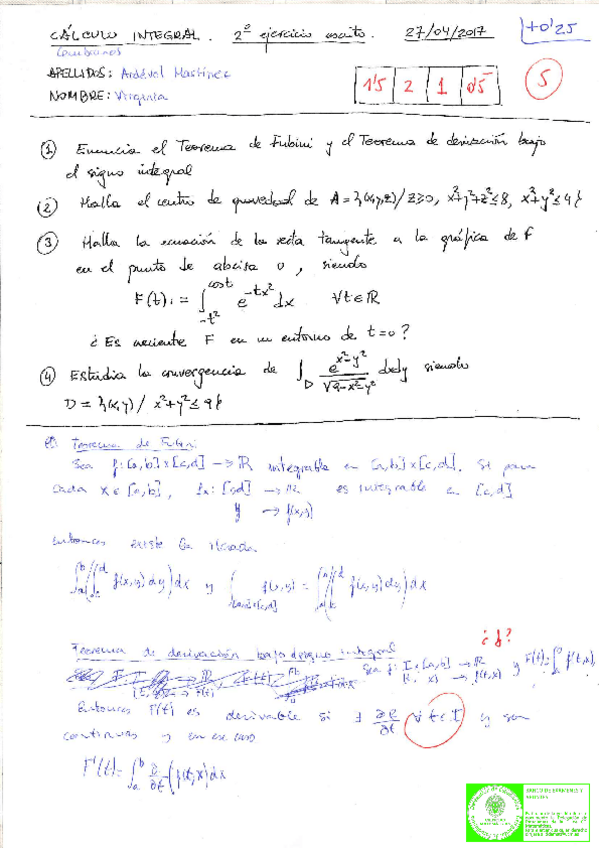 CÁLCULO INTEGRAL. 2º ejercicio escrito. 27/04/2017
+0'25
APELLIDOS: Ardévol Martínez
NOMBRE: Virginia
1'5 2 1 0'5
5
① Enuncia el Teorema de Fubini y el Teorema de derivación bajo
el signo integral
② Halla el centro de gravedad de A = {(x,y,z) / z≥0, x²+y²+z² ≤ 8, x²+y² ≤ 4}
③ Halla la ecuación de la recta tangente a la gráfica de F
en el punto de abcisa 0, siendo
F(t) := ∫_{-t²}^{cos t} e^{-tx²} dx ∀t∈ℝ
¿Es creciente F en un entorno de t=0?
④ Estudia la convergencia de ∫_D e^{x²-y²} / √(9-x²-y²) dxdy siendo
D = {(x,y) / x²+y² ≤ 9}
Teorema de Fubini
Sea f: [a,b]×[c,d] → ℝ integrable en [a,b]×[c,d]. Si para
cada x ∈ [a,b], fx: [c,d] → ℝ es integrable en [c,d]
y → f(x,y)
entonces existe la iterada
∫_a^b (∫_c^d f(x,y) dy) dx y ∫_{[a,b]×[c,d]} f(x,y) = ∫_a^b (∫_c^d f(x,y) dy) dx
¿f?
Teorema de derivación bajo el signo integral
Sea f: I×[a,b] → ℝ y F(t) = ∫_a^b f(t,x)
Entonces F(t) es derivable si ∃ ∀ t∈I y son
continuas y en ese caso
F'(t) = ∫_a^b ∂/∂t (f(t,x)) dx